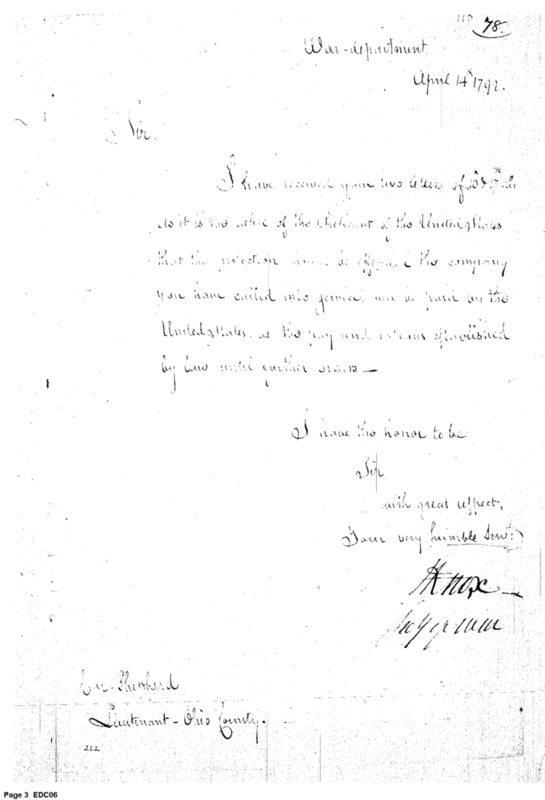 78.
War-department
April 14th 1792.
Sir.
I have received your two letters of
As it is the of the of the United States
that the protection be the company
you have called into service, be paid by the
United States, as the pay and established
by law until further orders —
I have the honor to be
Sir
with great respect,
Your very humble Servt.
HKnox —
Secy of war
Shepherd
Lieutenant - Ohio County.
212
Page 3 EDC06